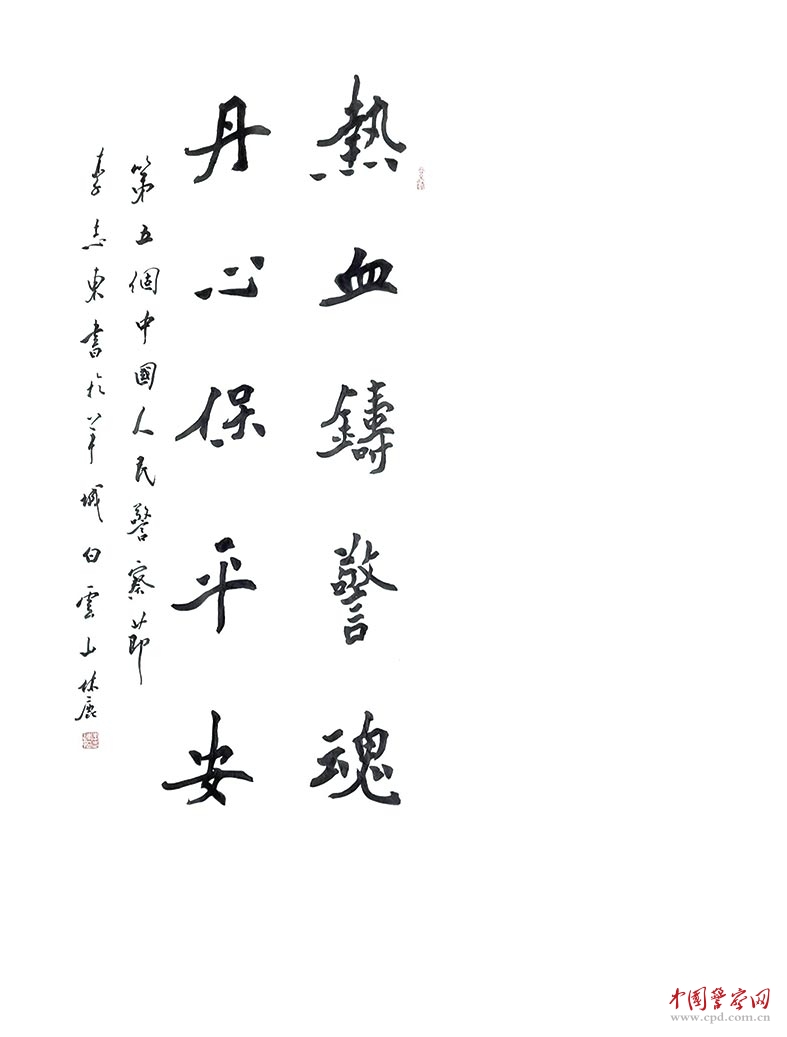 熱血鑄警魂
丹心保平安
第五個中國人民警察節
李志東書於羊城白雲山林麓
中国警察网
www.cpd.com.cn